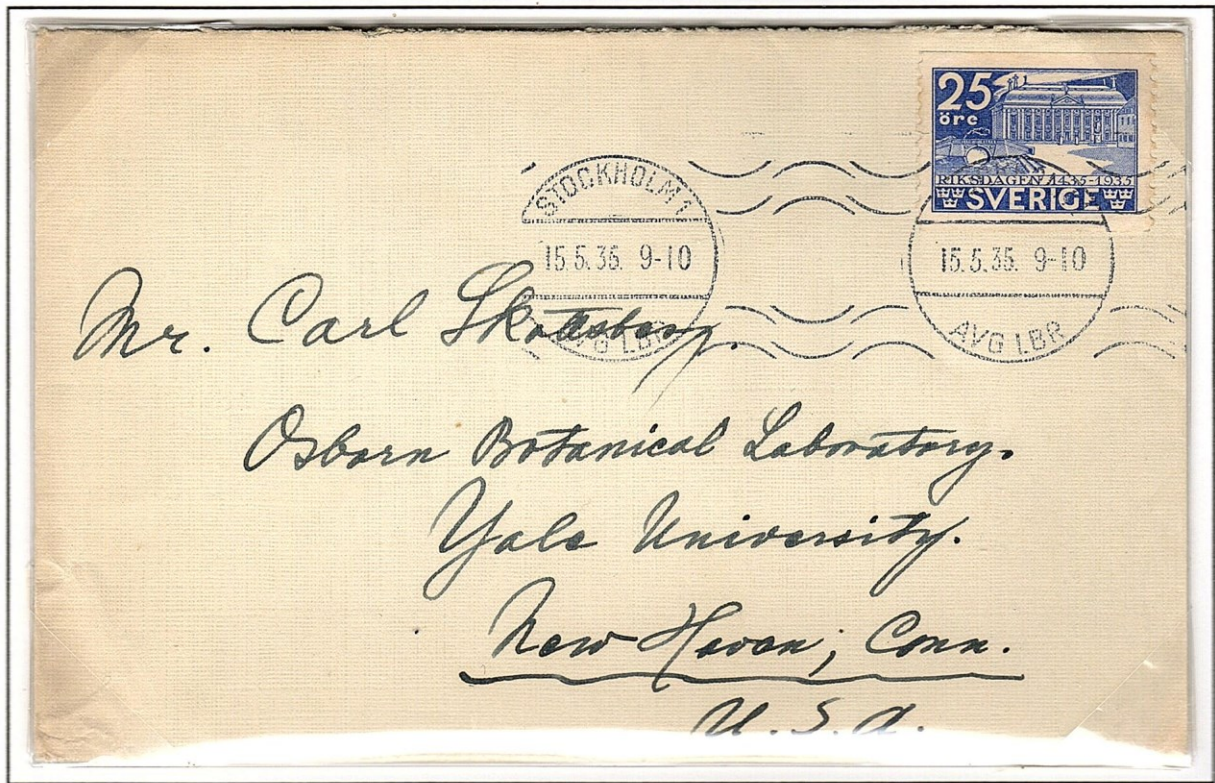 25
öre
RIKSDAGEN 1435-1935
SVERIGE
STOCKHOLM 1
15.5.35. 9-10
AVG I.BR
15.5.35. 9-10
AVG I.BR
Mr. Carl Skottsberg.
Osborn Botanical Laboratory.
Yale University.
New Haven, Conn.
U.S.A.